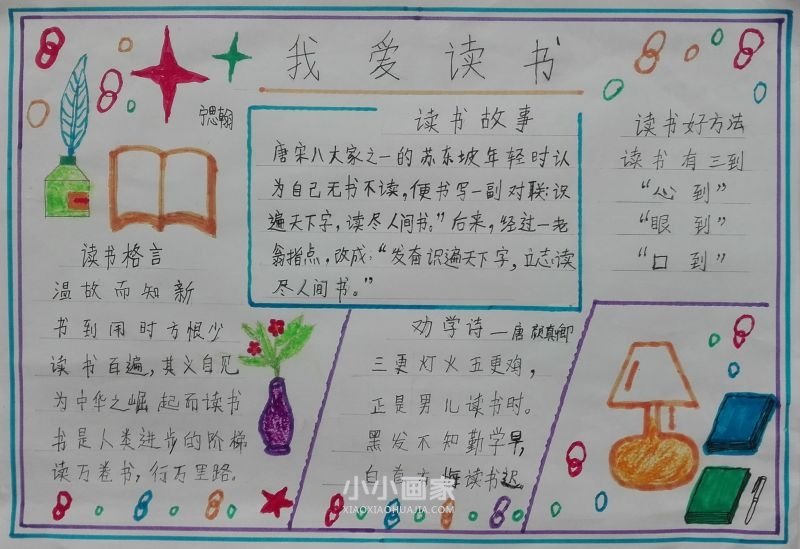 我爱读书
宁思翰
读书故事
唐宋八大家之一的苏东坡年轻时认
为自己无书不读,便书写一副对联:识
遍天下字,读尽人间书。”后来,经过一老
翁指点,改成:“发奋识遍天下字,立志读
尽人间书。”
读书好方法
读书有三到
“心到”
“眼到”
“口到”
读书格言
温故而知新
书到用时方恨少
读书百遍,其义自见
为中华之崛起而读书
书是人类进步的阶梯
读万卷书,行万里路。
劝学诗—唐 颜真卿
三更灯火五更鸡,
正是男儿读书时。
黑发不知勤学早,
白首方悔读书迟
小小画家
XIAOXIAOHUAJIA.COM